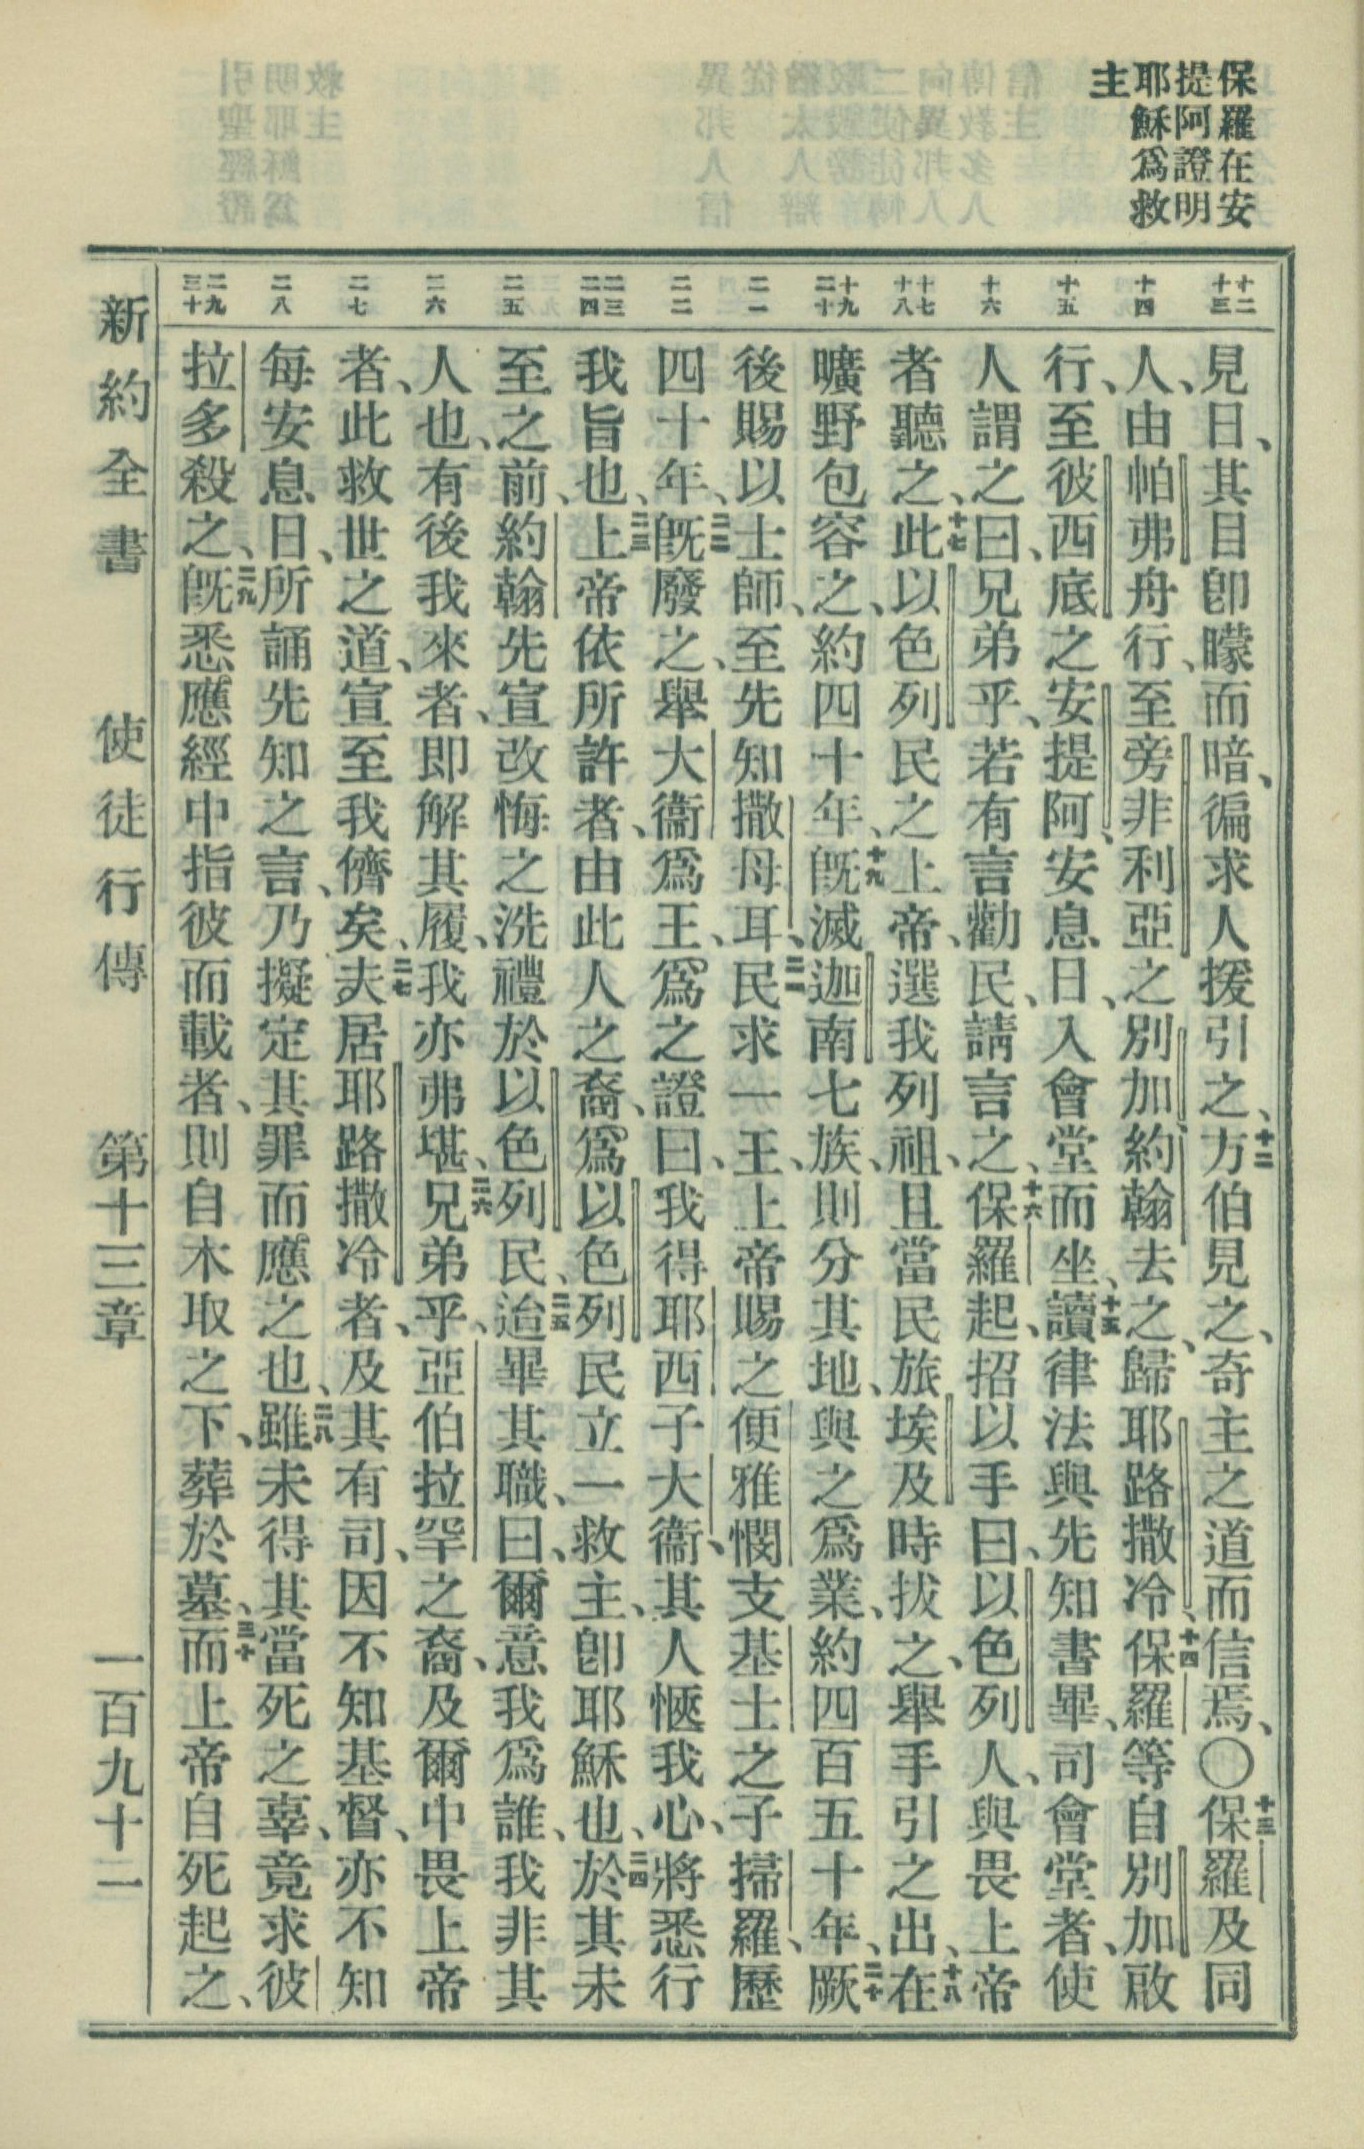 保羅在安
提阿證明
耶穌爲救
主
十二
十三
十四
十五
十六
十七
十八
十九
二十
二一
二二
二三
二四
二五
二六
二七
二八
二九
三十
見日、其目卽矇而暗、徧求人援引之、十二方伯見之、奇主之道而信焉、〇十三保羅及同
人、由帕弗舟行、至旁非利亞之別加、約翰去之、歸耶路撒冷、十四保羅等自別加啟
行、至彼西底之安提阿、安息日、入會堂而坐、十五讀律法與先知書畢、司會堂者、使
人謂之曰、兄弟乎、若有言勸民、請言之、十六保羅起、招以手曰、以色列人、與畏上帝
者聽之、十七此以色列民之上帝、選我列祖、且當民旅埃及時拔之、舉手引之出、十八在
曠野包容之、約四十年、十九旣滅迦南七族、則分其地、與之爲業、約四百五十年、二十厥
後賜以士師、至先知撒母耳、二一民求一王、上帝賜之便雅憫支基士之子掃羅、歷
四十年、二二旣廢之、舉大衞爲王、爲之證曰、我得耶西子大衞、其人愜我心、將悉行
我旨也、二三上帝依所許者、由此人之裔、爲以色列民立一救主、卽耶穌也、二四於其未
至之前、約翰先宣改悔之洗禮於以色列民、二五迨畢其職、曰、爾意我爲誰、我非其
人也、有後我來者、即解其履、我亦弗堪、二六兄弟乎、亞伯拉罕之裔、及爾中畏上帝
者、此救世之道、宣至我儕矣、二七夫居耶路撒冷者、及其有司、因不知基督、亦不知
每安息日、所誦先知之言、乃擬定其罪而應之也、二八雖未得其當死之辜、竟求彼
拉多殺之、二九旣悉應經中指彼而載者、則自木取之下、葬於墓、三十而上帝自死起之、
新約全書 使徒行傳 第十三章 一百九十二